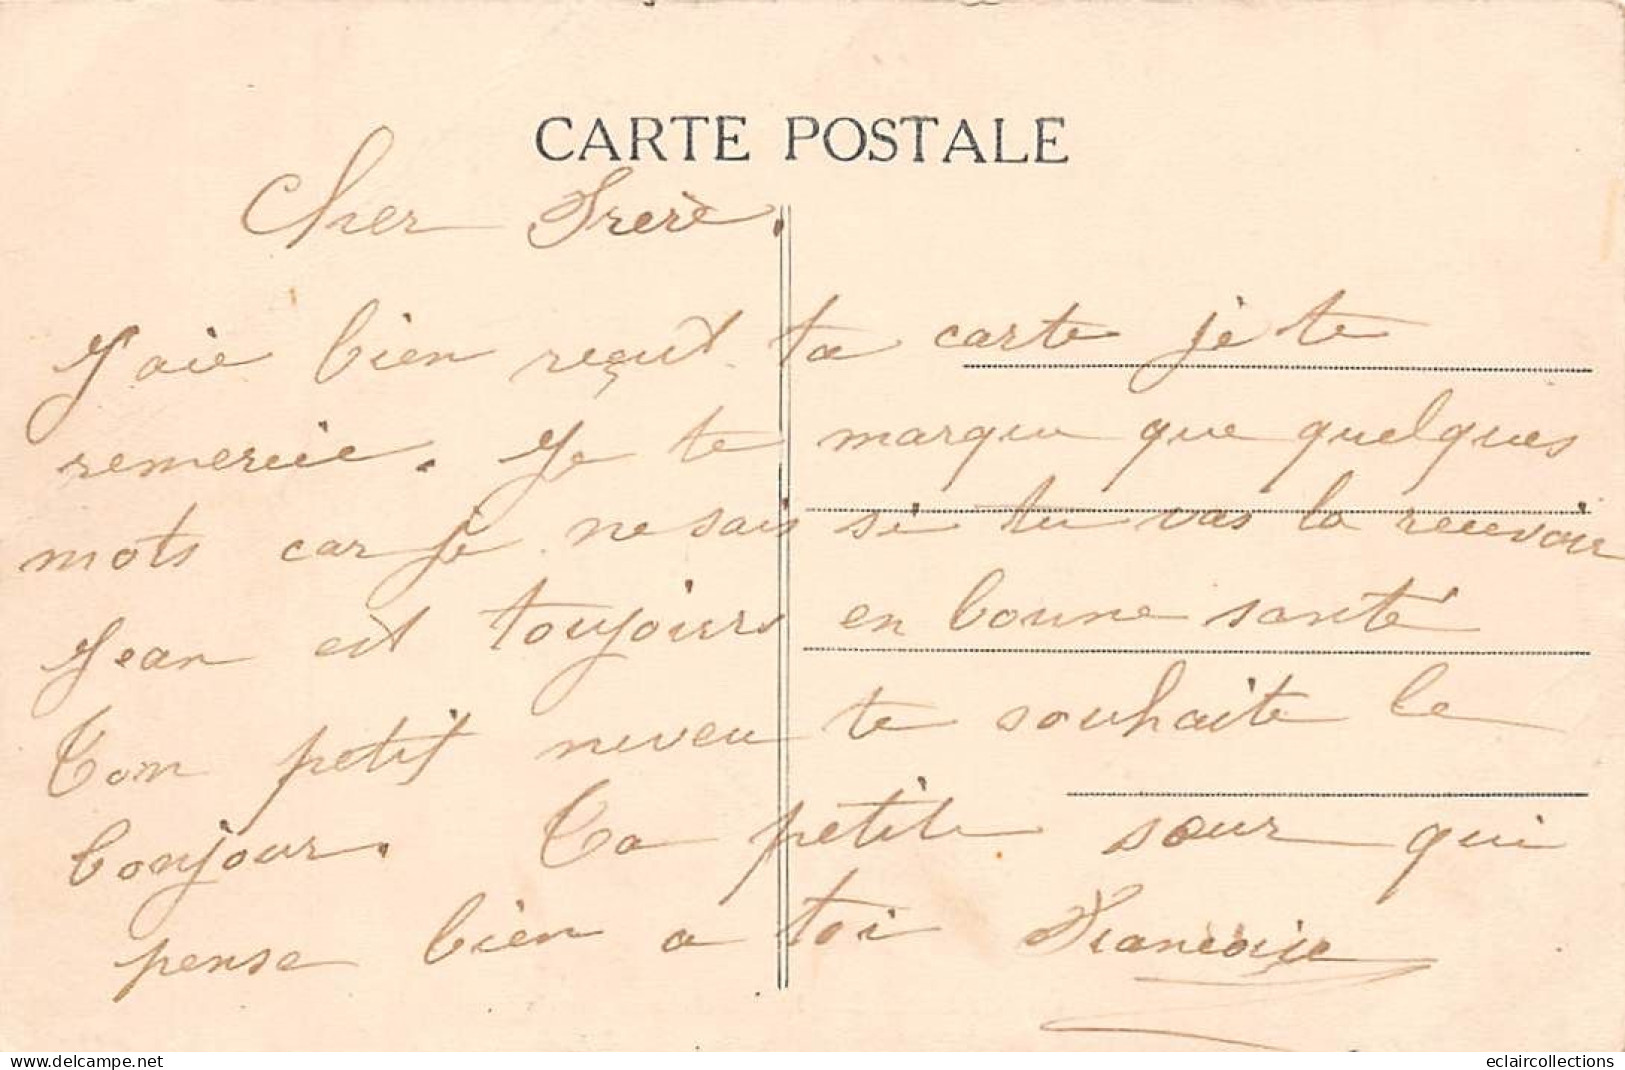 CARTE POSTALE
Cher Frerè.
J'aie bien reçut ta carte je te
remercie. Je te marqu que quelques
mots car je ne sais si tu vas la recevoir
Jean est toujours en bonne santé
Ton petit neveu te souhaite le
bonjour. Ta petite sœur qui
pense bien a toi Francoise
www.delcampe.net
eclaircollections